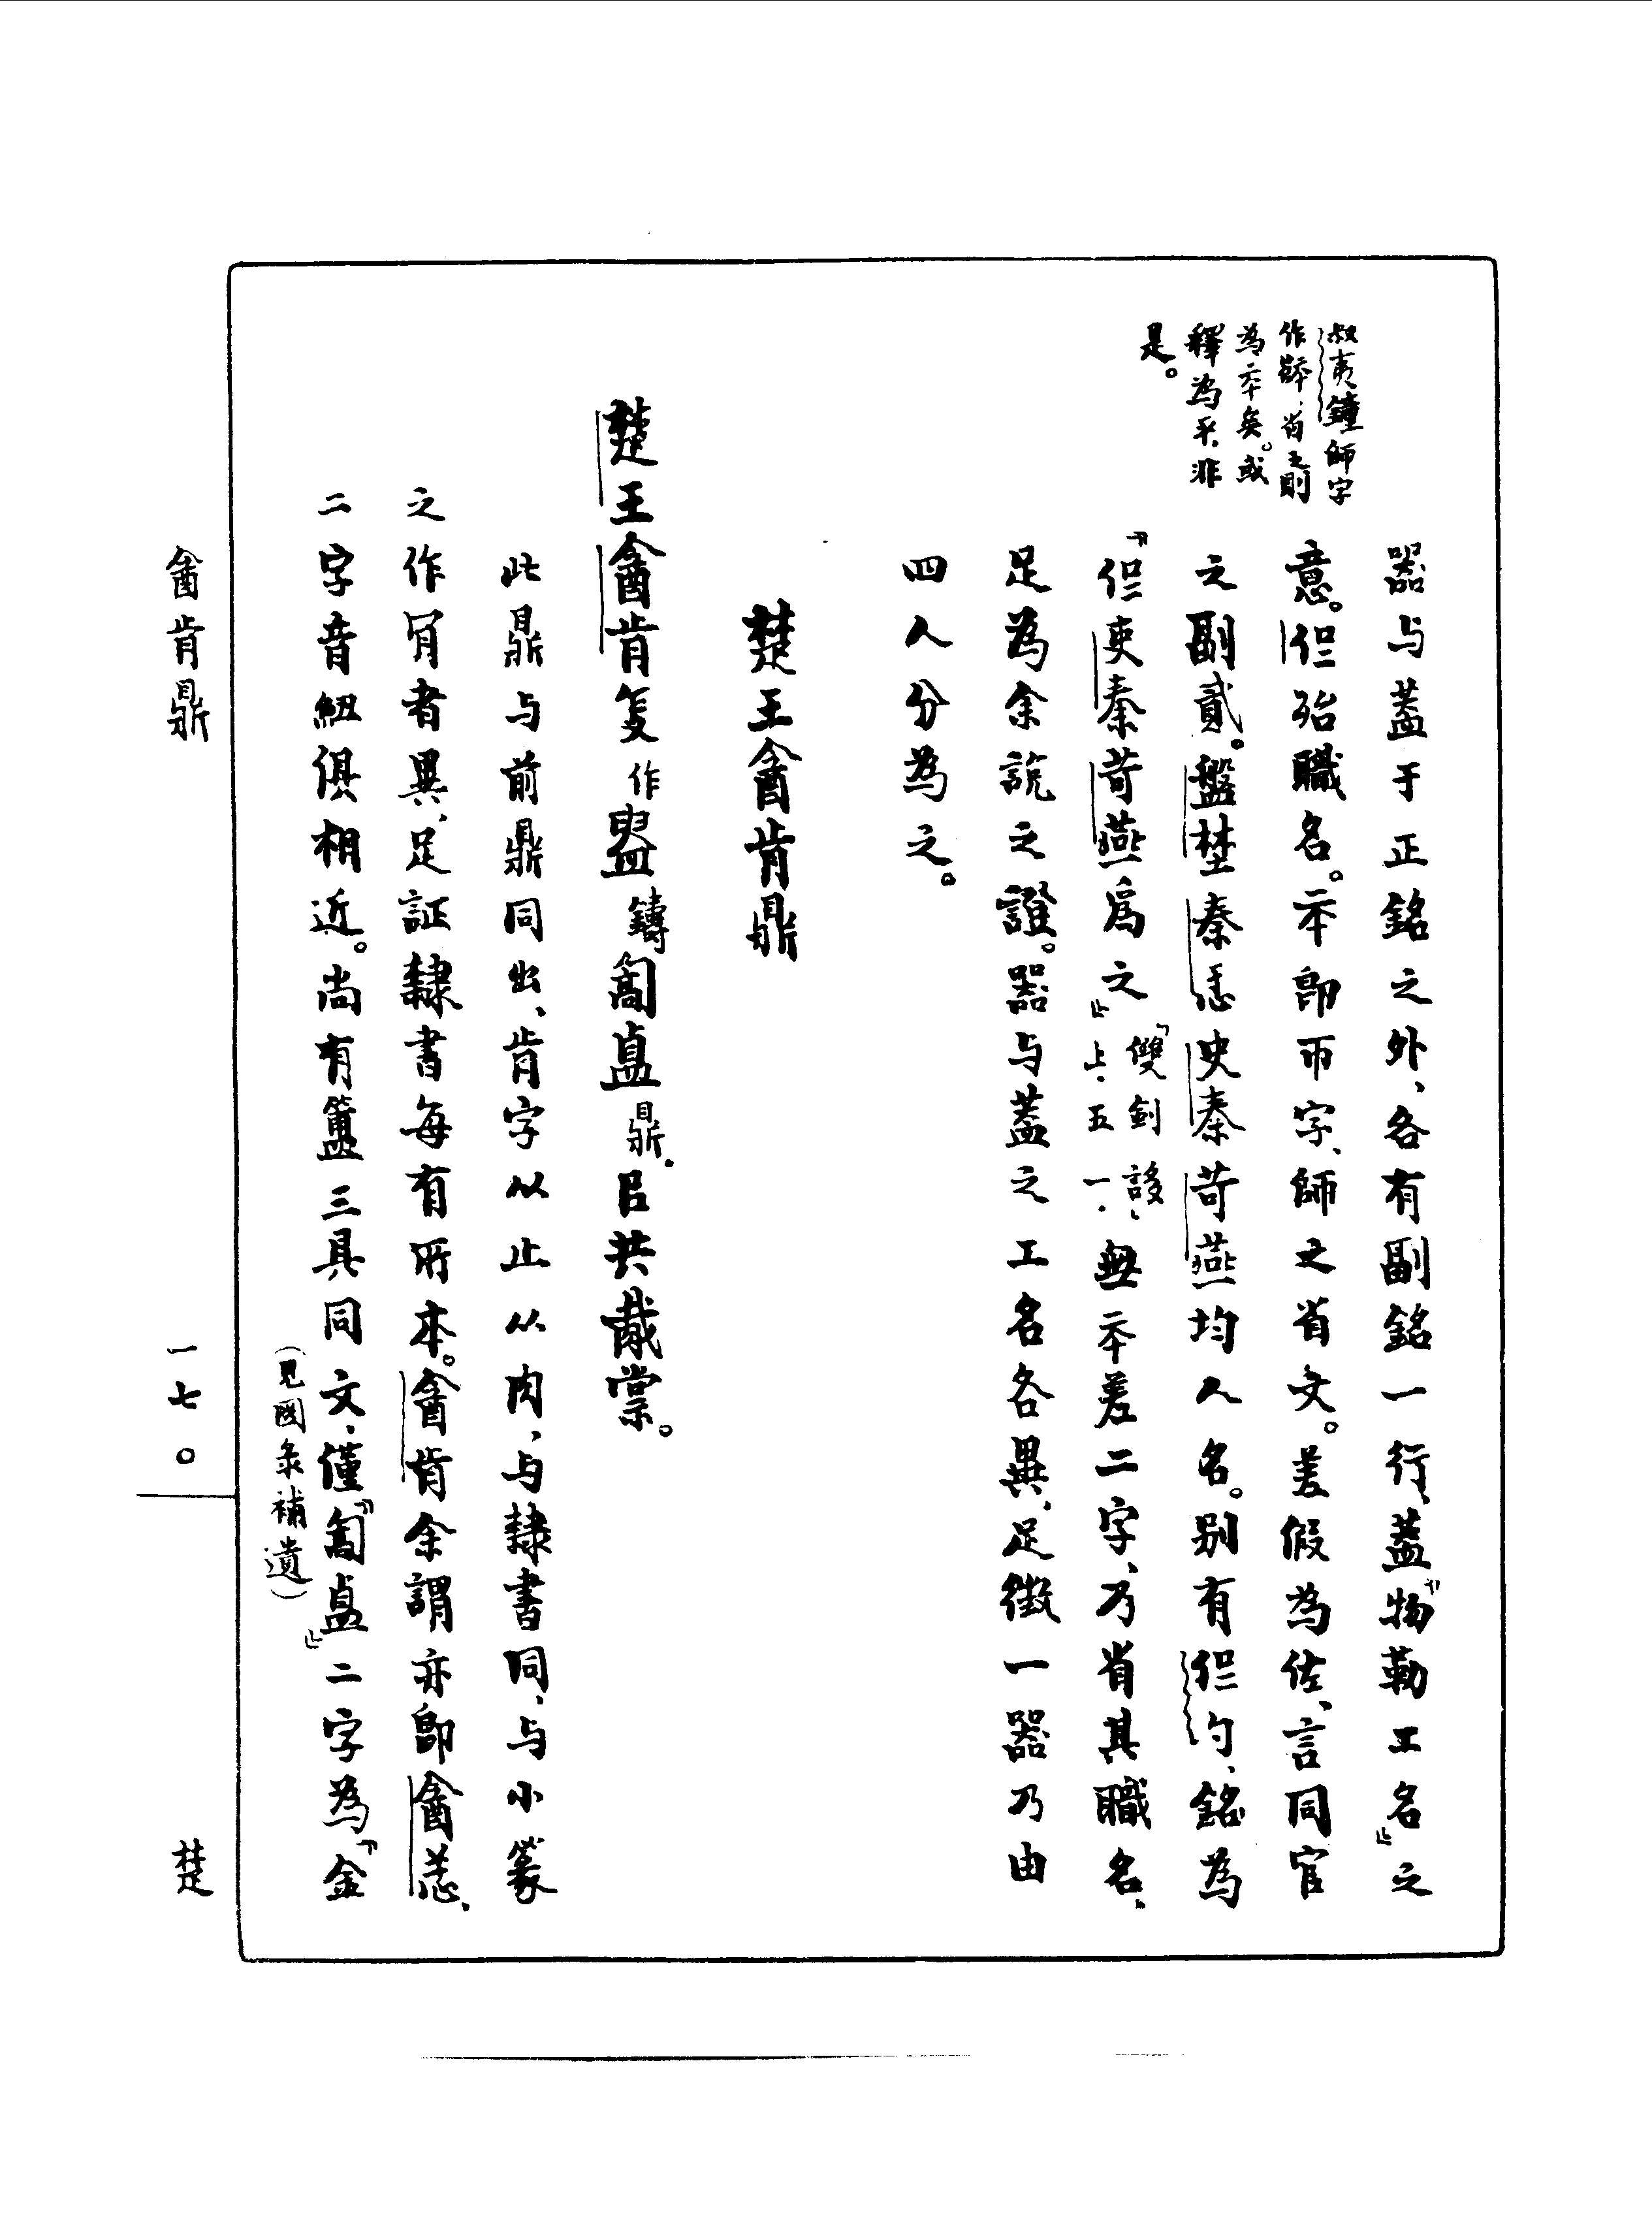 叔夷鐘師字
作㡭，省之則
為夲矣。或
釋為乎，非
是。
器与蓋于正銘之外、各有副銘一行，蓋『物勒工名』之
意。但㱐職名。夲即帀字、師之省文。差假為佐、言同官
之副貳。盤埜秦忎史秦苛燕均人名。别有但勺，銘為
『但吏秦苛燕爲之』『雙劍誃，上·五一·無夲差二字，乃省其職名，
足為余説之證。器与蓋之工名各異，足徵一器乃由
四人分為之。
楚王酓肯鼎
楚王酓肯𢓊作盥鑄匋𥁑鼎，㠯共胾棠。
此鼎与前鼎同出、肯字从止从肉，与隸書同，与小篆
之作肎者異，足証隸書每有所本。酓肯余謂亦即酓忎，
二字音紐俱相近。尚有簠三具同文，僅『匋𥁑』二字為『金
（見圖彔補遺）
酓肯鼎
一七〇
楚